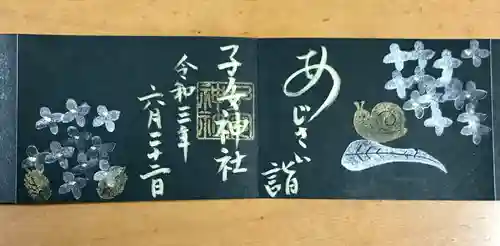 あじさい詣
子安神社
令和三年
六月二十一日